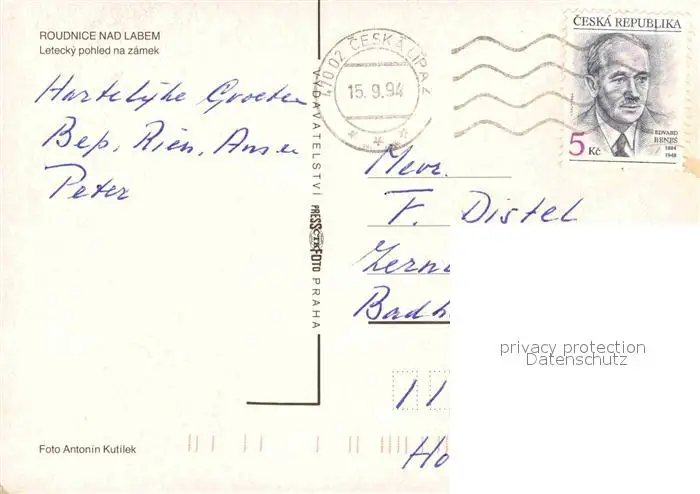 ROUDNICE NAD LABEM
Letecký pohled na zámek
Hartelijke Groeten
Bep, Rien, Anne
Peter
Foto Antonín Kutílek
VYDAVATELSTVÍ PRESSFOTO PRAHA
ČTK
470 02 ČESKÁ LÍPA 2
15.9.94
ČESKÁ REPUBLIKA
EDVARD
BENEŠ
1884
1948
5 Kč
Mevr.
F. Distel
Zern
Badh
11
Ho
privacy protection
Datenschutz